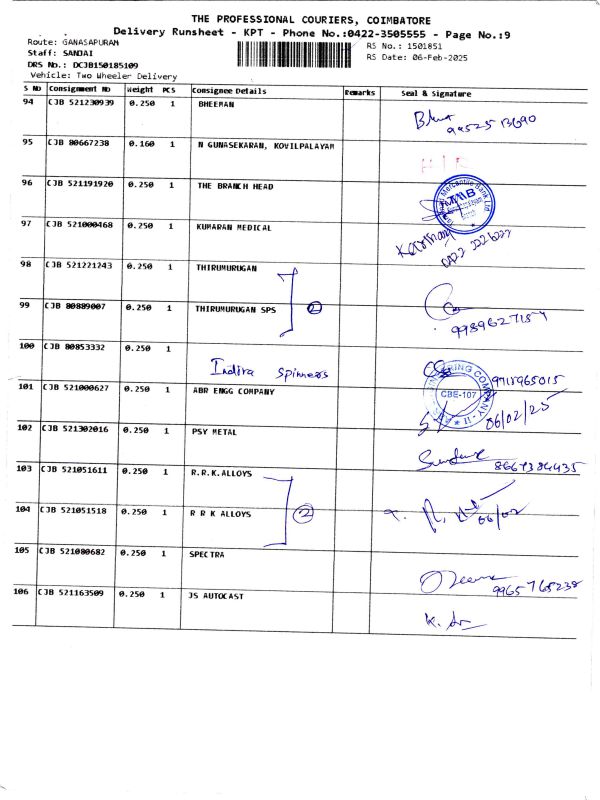 THE PROFESSIONAL COURIERS, COIMBATORE
Delivery Runsheet - KPT - Phone No.:0422-3505555 - Page No.:9
Route: GANASAPURAM
RS No.: 1501851
Staff: SANJAI
RS Date: 06-Feb-2025
DRS No.: DCJB150185109
Vehicle: Two Wheeler Delivery
S No Consignment No Weight PCS Consignee Details Remarks Seal & Signature
94 CJB 521230939 0.250 1 BHEEMAN
95 CJB 80667238 0.160 1 N GUNASEKARAN, KOVILPALAYAM
96 CJB 521191920 0.250 1 THE BRANCH HEAD
97 CJB 521000468 0.250 1 KUMARAN MEDICAL
0422 2226222
98 CJB 521221243 0.250 1 THIRUMURUGAN
99 CJB 80889007 0.250 1 THIRUMURUGAN SPS 2
100 CJB 80853332 0.250 1
Indira Spinners
9715965015
101 CJB 521000627 0.250 1 ABR ENGG COMPANY CBE-107
06/02/25
102 CJB 521302016 0.250 1 PSY METAL
8667384435
103 CJB 521051611 0.250 1 R.R.K.ALLOYS
104 CJB 521051518 0.250 1 R R K ALLOYS 2
06/02
105 CJB 521080682 0.250 1 SPECTRA
9965768238
106 CJB 521163509 0.250 1 JS AUTOCAST